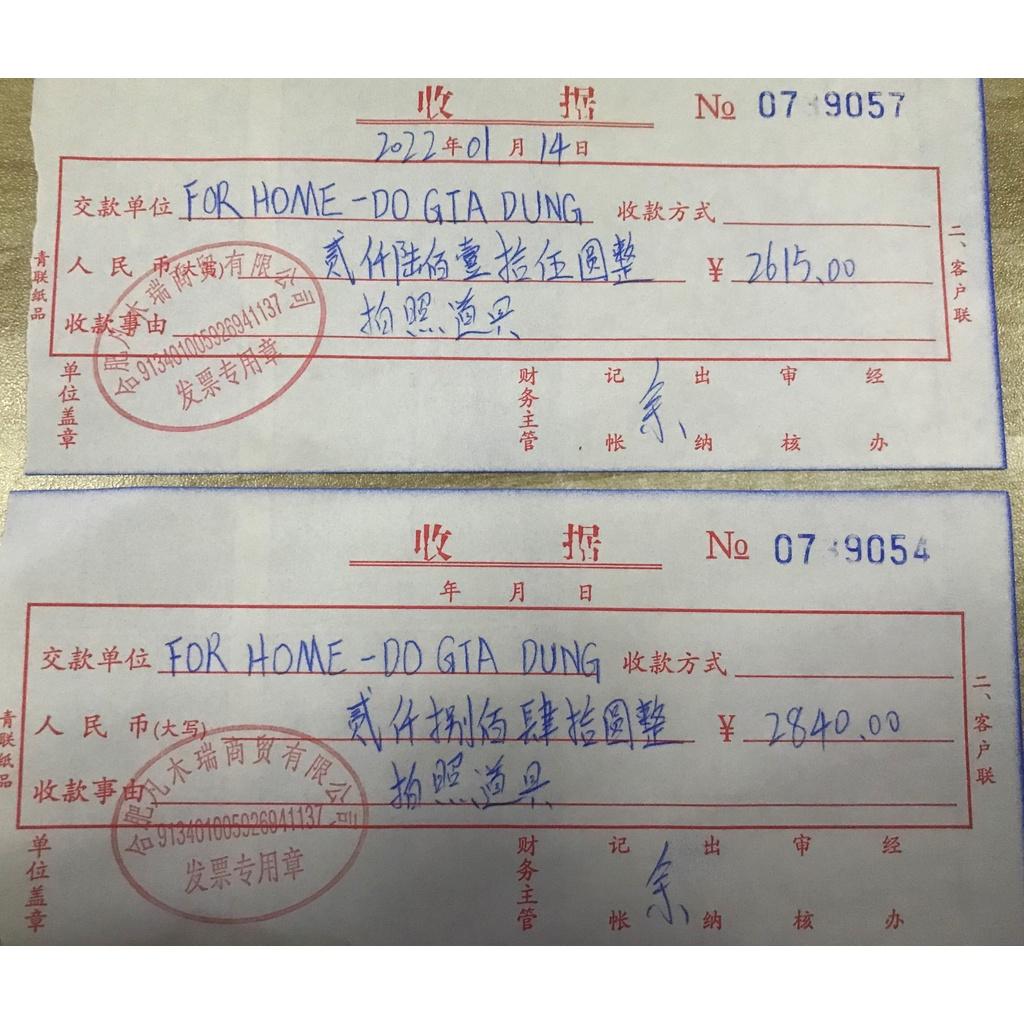 收 据 № 07 9057
2022年01月14日
交款单位 FOR HOME - DO GIA DUNG 收款方式
人民币(大写) 贰仟陆佰壹拾伍圆整 ¥ 2615.00
收款事由 拍照道具
青联纸品
二、客户联
合肥凡木瑞商贸有限公司
913401005926941137
发票专用章
单位盖章 财务主管 记帐 余 出纳 审核 经办
收 据 № 07 9054
年 月 日
交款单位 FOR HOME - DO GIA DUNG 收款方式
人民币(大写) 贰仟捌佰肆拾圆整 ¥ 2840.00
收款事由 拍照道具
青联纸品
二、客户联
合肥凡木瑞商贸有限公司
913401005926941137
发票专用章
单位盖章 财务主管 记帐 余 出纳 审核 经办